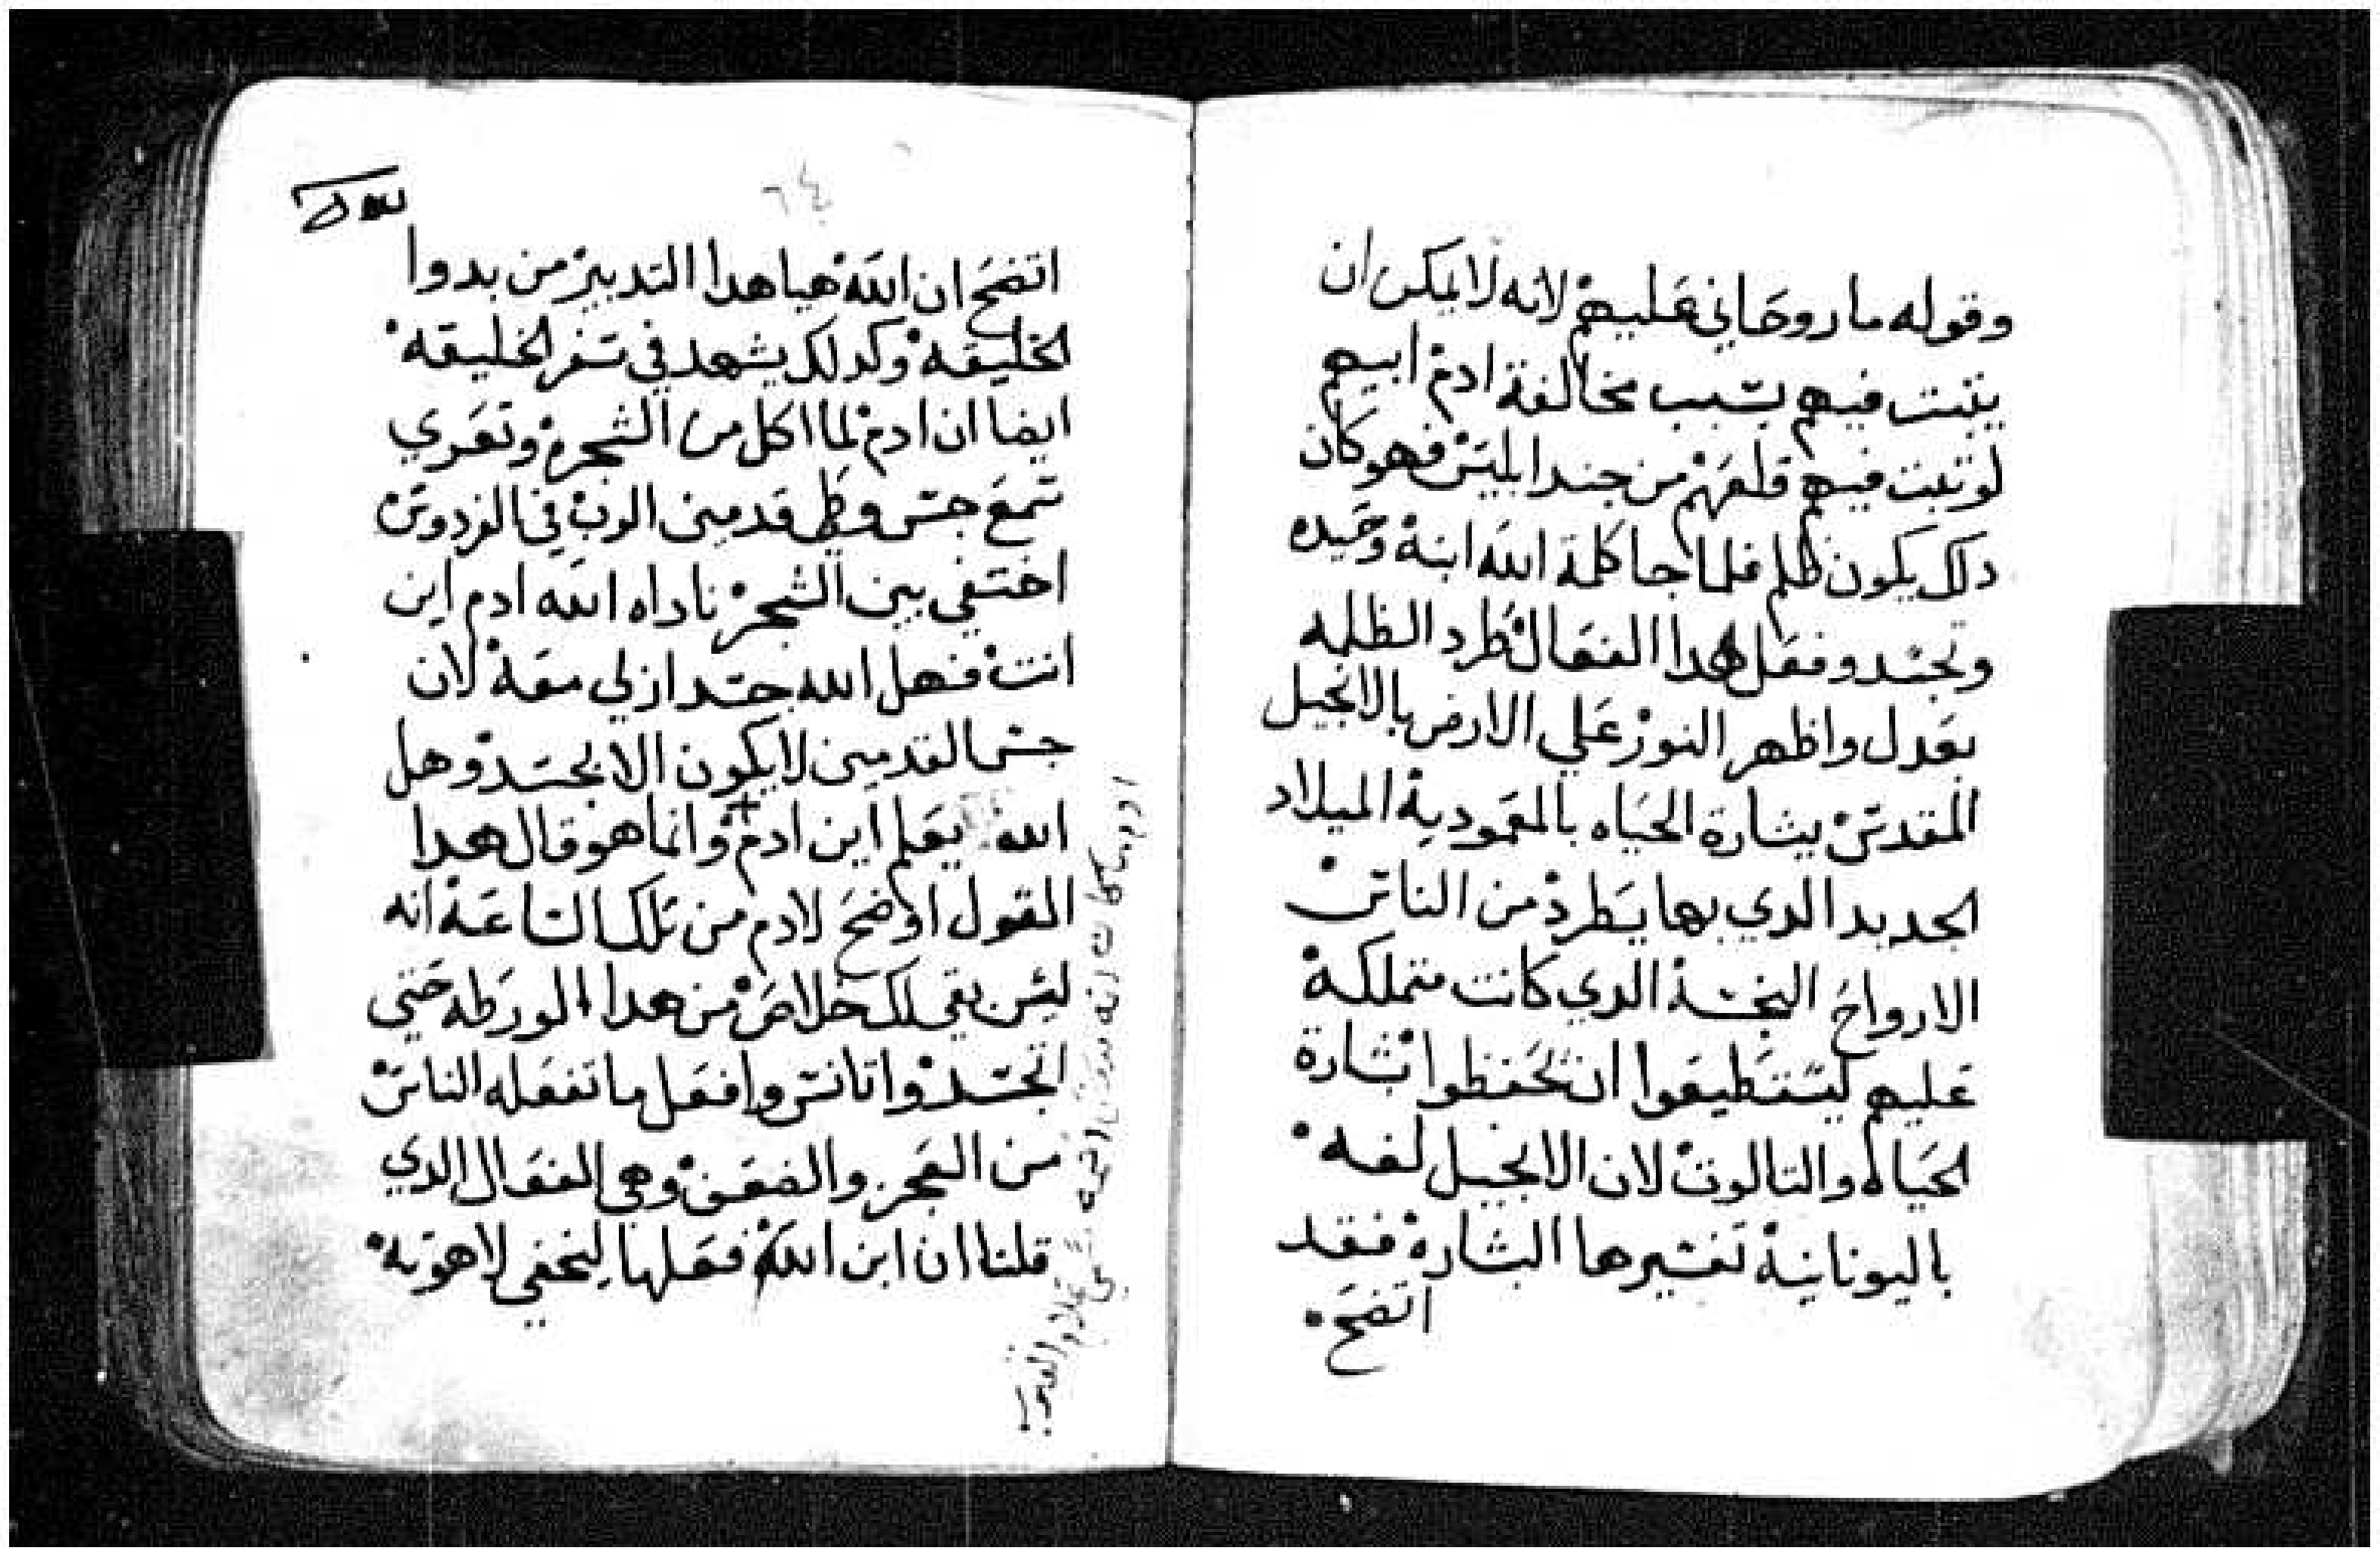 وقوله ما روحاني عليهم لانه لا يمكن ان
يثبت فيهم بسبب مخالفة ادم ابيهم
لو ثبت فيهم قلعهم من جند ابليس فهو كان
دلك يكون ظلم فلما جا كلمة الله ابنه وحيده
وتجسد وفعل هدا الفعال طرد الظلمه
بعدل واظهر النور علي الارض بالانجيل
المقدس بشارة الحياه بالمعمودية الميلاد
الجديد الدي بها يطرد من الناس
الارواح النجسه الدي كانت متملكه
عليهم ليستطيعوا ان يحفظوا بشارة
الحياه والتالوت لان الانجيل لغه
باليونانية تفسيرها البشاره فقد
اتضح
٦٤
اتضح ان الله هيا هدا التدبير من بدوا
الخليقه وكدلك يشهد في سفر الخليقه
ايضا ان ادم لما اكل من الشجره وتعري
سمع حس وطي قدمين الرب في الفردوس
اختفي بين الشجر ناداه الله ادم اين
انت فهل الله جسد ازلي معه لان
حس القدمين لا يكون الا بجسد وهل
الله يعلم اين ادم وانما هو قال هدا
القول اوضح لادم من تلك الساعه انه
ليس بقي لك خلاص من هدا الورطه حتي
اتجسد واتانس وافعل ما تفعله الناس
من العجز والضعف وهي الفعال الدي
قلنا ان ابن الله فعلها ليخفي لاهوته